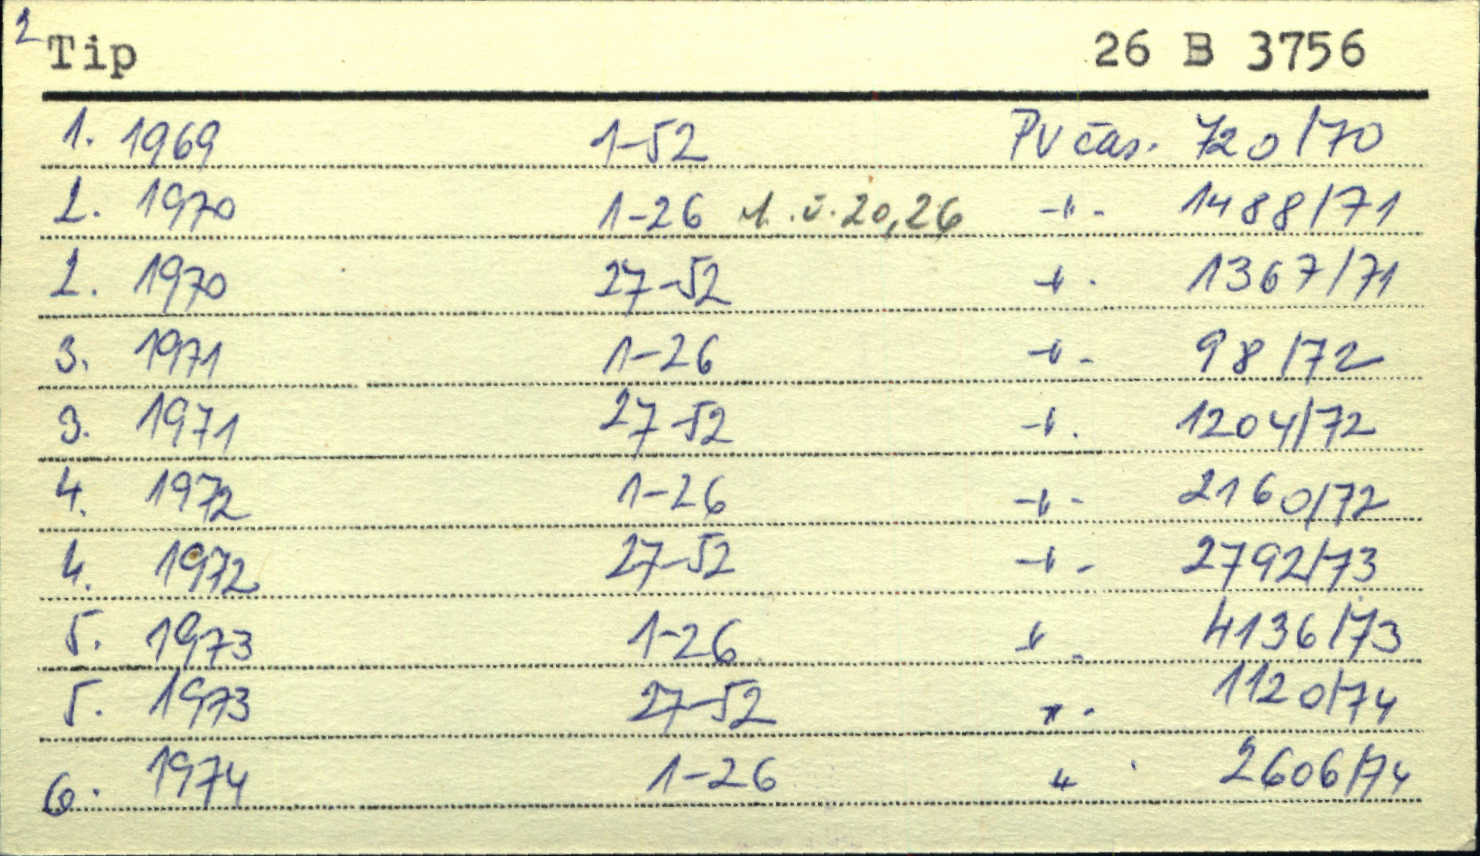 2
Tip 26 B 3756
1. 1969 1-52 PV čas. 720/70
2. 1970 1-26 20,26 -"- 1488/71
2. 1970 27-52 -"- 1367/71
3. 1971 1-26 -"- 98/72
3. 1971 27-52 -"- 1204/72
4. 1972 1-26 -"- 2160/72
4. 1972 27-52 -"- 2792/73
5. 1973 1-26 -"- 4136/73
5. 1973 27-52 -"- 1120/74
6. 1974 1-26 " 2606/74